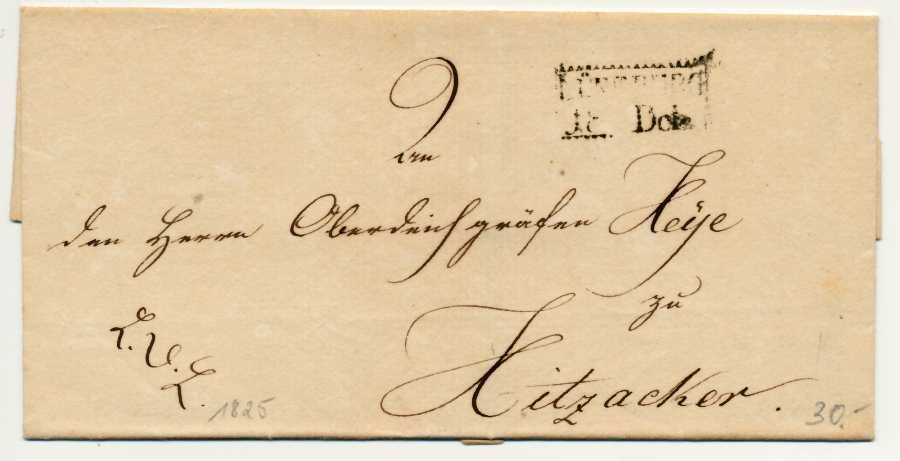 LÜNEBURG
18. Dcb.
An
den Herrn Oberdeichgräfen Heÿe
zu
Hitzacker.
1825
30.-